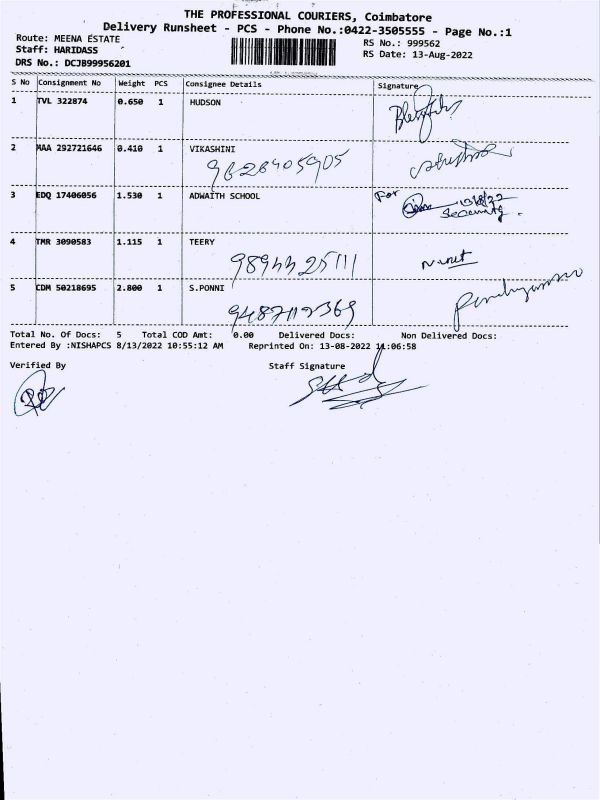 THE PROFESSIONAL COURIERS, Coimbatore
Delivery Runsheet - PCS - Phone No.:0422-3505555 - Page No.:1
Route: MEENA ESTATE
RS No.: 999562
Staff: HARIDASS
RS Date: 13-Aug-2022
DRS No.: DCJB99956201
S No Consignment No Weight PCS Consignee Details Signature
1 TVL 322874 0.650 1 HUDSON
2 MAA 292721646 0.410 1 VIKASHINI
9626405905
3 EDQ 17406056 1.530 1 ADWAITH SCHOOL
For
Security.
4 TMR 3090583 1.115 1 TEERY
9894425111
5 CDM 50218695 2.800 1 S.PONNI
9487112369
Total No. Of Docs: 5 Total COD Amt: 0.00 Delivered Docs: Non Delivered Docs:
Entered By :NISHAPCS 8/13/2022 10:55:12 AM Reprinted On: 13-08-2022 11:06:58
Verified By Staff Signature